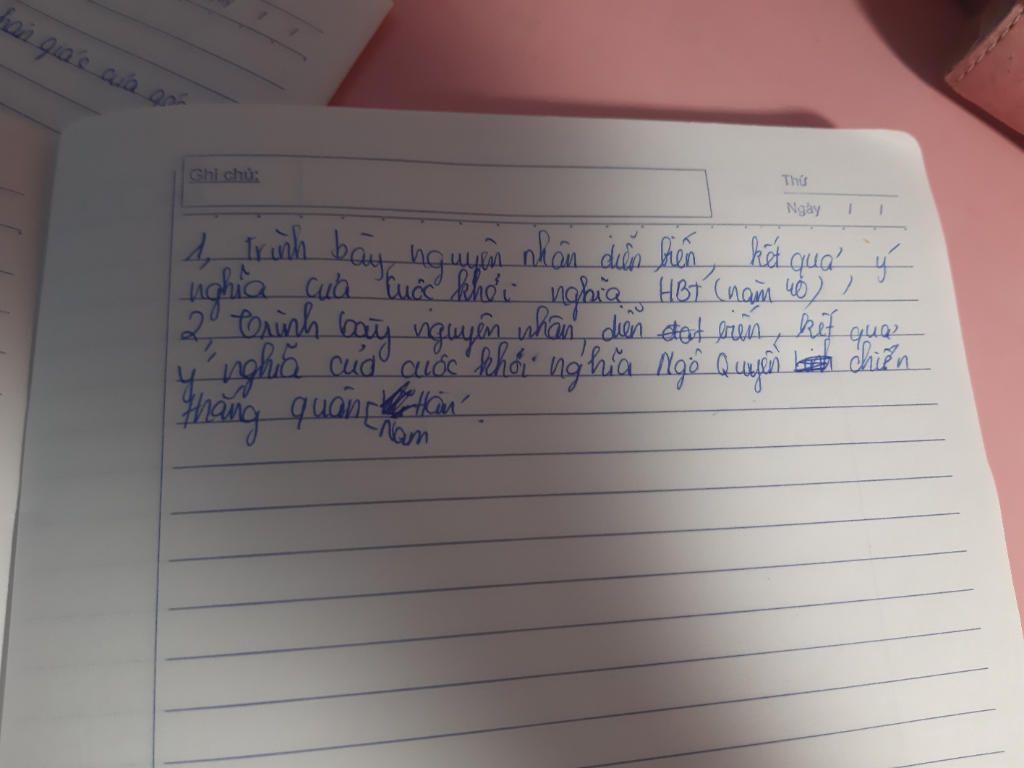 hân giác của góc
Ghi chú:
Thứ
Ngày / /
1, Trình bày nguyên nhân diễn biến, kết quả ý
nghĩa của cuộc khởi nghĩa HBT (năm 40)
2, Trình bày nguyên nhân, diễn biến, kết quả
ý nghĩa của cuộc khởi nghĩa Ngô Quyền chiến
thắng quân Hán
Nam